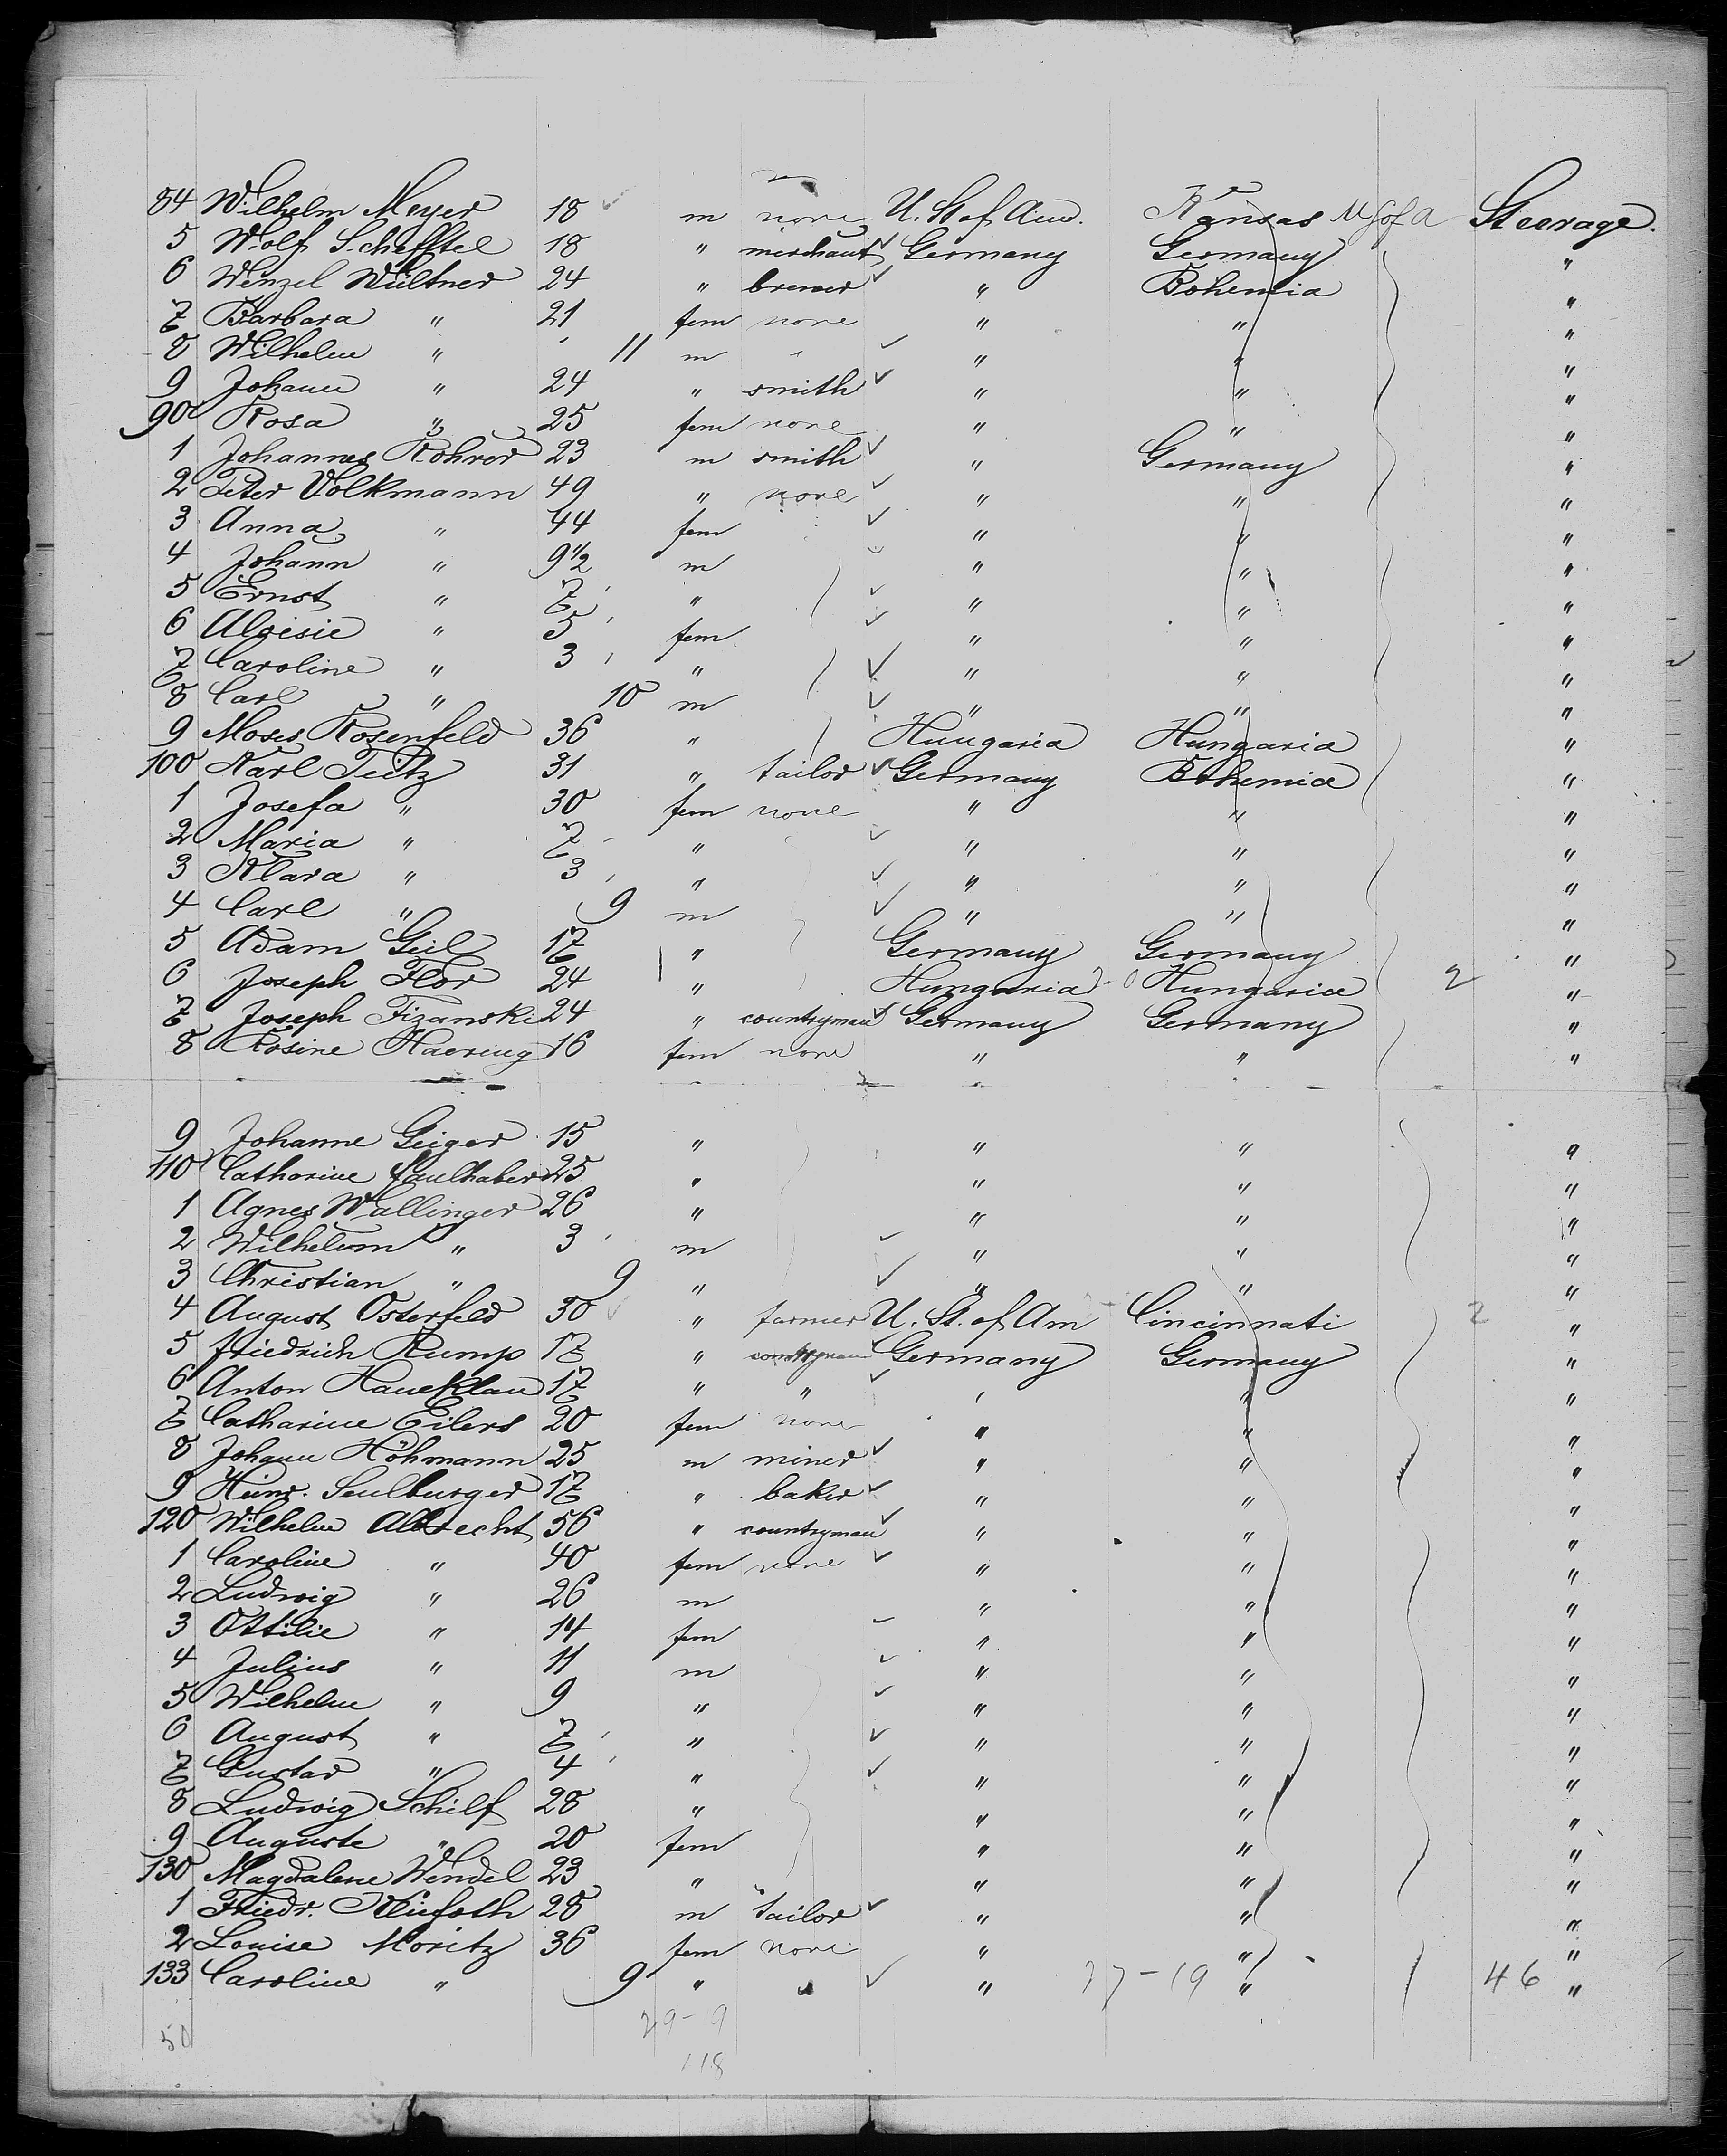 84 Wilhelm Meyer 18 m none U. St of Am. Kansas U S of A Steerage.
5 Wolf Schefftel 18 " merchant Germany Germany "
6 Wenzel Wültner 24 " brewer " Bohemia "
7 Barbara " 21 fem none " " "
8 Wilhelm " 11 m " " " "
9 Johann " 24 " smith " " "
90 Rosa " 25 fem none " " "
1 Johannes Rohrer 23 m smith " Germany "
2 Peter Volkmann 49 " none " " "
3 Anna " 44 fem " " "
4 Johann " 9 1/2 m " " "
5 Ernst " 7 " " " "
6 Aloisie " 5 fem " " "
7 Caroline " 3 " " " "
8 Carl " 10 m " " "
9 Moses Rosenfeld 36 " Hungaria Hungaria "
100 Karl Teitz 31 " tailor Germany Bohemia "
1 Josefa " 30 fem none " " "
2 Maria " 7 " " " "
3 Klara " 3 " " " "
4 Carl " 9 m " " "
5 Adam Geil 17 " Germany Germany "
6 Joseph Flor 24 " Hungaria Hungaria 2 "
7 Joseph Fizanski 24 " countryman Germany Germany "
8 Rosine Haering 16 fem none " " "
9 Johanne Geiger 15 " " " "
110 Catharine Faulhaber 25 " " " "
1 Agnes Wallinger 26 " " " "
2 Wilhelm " 3 m " " "
3 Christian " 9 " " " "
4 August Osterfeld 30 " farmer U. St. of Am Cincinnati 2 "
5 Friedrich Rump 17 " countryman Germany Germany "
6 Anton Haueklau 17 " " " " "
7 Catharine Eilers 20 fem none " " "
8 Johann Höhmann 25 m miner " " "
9 Heinr. Seulburger 17 " baker " " "
120 Wilhelm Albrecht 56 " countryman " " "
1 Caroline " 40 fem none " " "
2 Ludwig " 26 m " " "
3 Ottilie " 14 fem " " "
4 Julius " 11 m " " "
5 Wilhelm " 9 " " " "
6 August " 7 " " " "
7 Gustav " 4 " " " "
8 Ludwig Schilf 28 " " " "
9 Auguste " 20 fem " " "
130 Magdalene Wendel 23 " " " "
1 Friedr. Kliefoth 28 m tailor " " "
2 Louise Moritz 36 fem none " " "
133 Caroline " 9 " " " 27-19 " 46 "
50 29-9
118